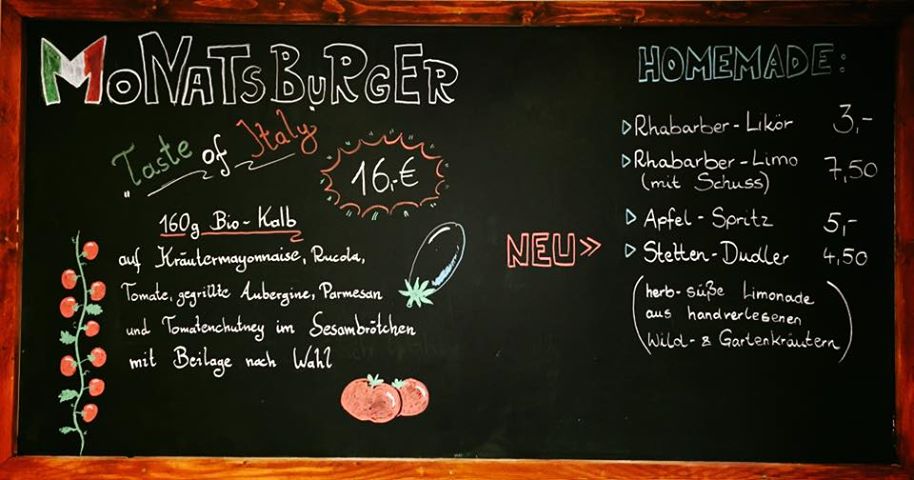 MONATSBURGER
"Taste of Italy
16,-€
160g Bio-Kalb
auf Kräutermayonnaise, Rucola,
Tomate, gegrillte Aubergine, Parmesan
und Tomatenchutney im Sesambrötchen
mit Beilage nach Wahl
HOMEMADE:
Rhabarber-Likör 3,-
Rhabarber-Limo 7,50
(mit Schuss)
Apfel-Spritz 5,-
NEU» Stetten-Dudler 4,50
(herb-süße Limonade
aus handverlesenen
Wild- & Gartenkräutern)